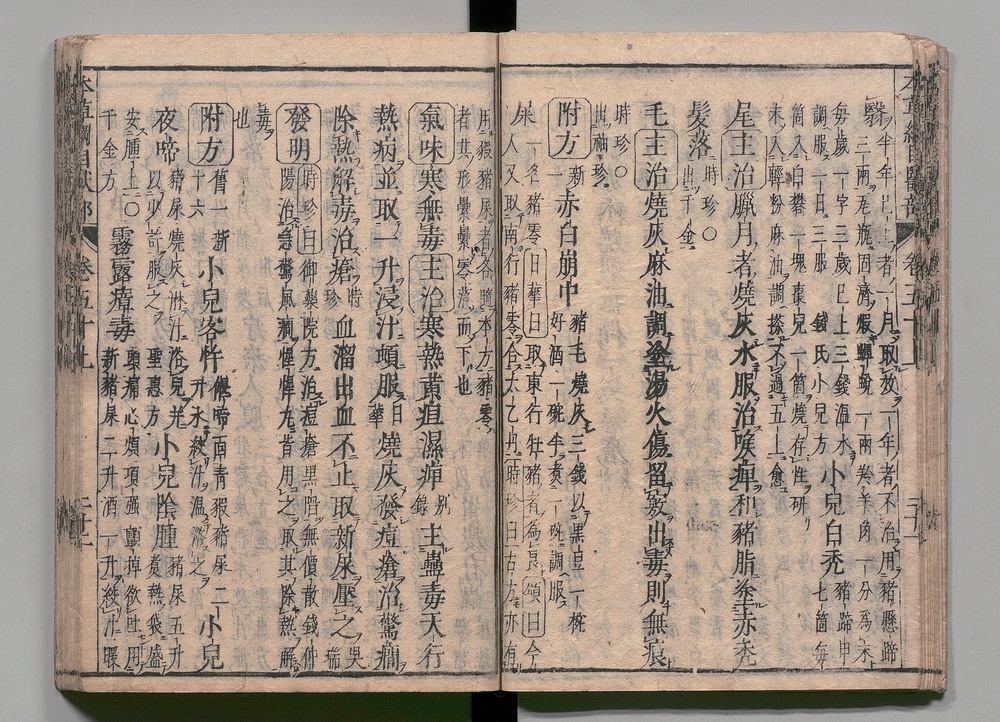 翳半年已上者一月取效一年者不治用豬懸蹄
三兩瓦瓶固濟煅蟬蛻一兩羚羊角一分為末
每歲一字三歲已上三錢溫水
調服一日三服 錢氏小兒方 小兒白禿 豬蹄甲七箇每
箇入白礬一塊棗兒一箇燒存性研
末入輕粉麻油調搽不過五上愈
尾主治臘月者燒灰水服治喉痺和豬脂塗赤禿
髮落 時珍○出千金
毛主治燒灰麻油調塗湯火傷留竅出毒則無痕
時珍○
出袖珍
附方 新一 赤白崩中 豬毛燒灰三錢以黑豆一椀
好酒一椀半煮一椀調服
屎 一名豬零日華曰取東行牡豬者為良頌曰今
人又取南行豬零合太乙丹時珍曰古方亦有
用豭豬屎者各隨本方豬零
者其形纍纍零落而下也
氣味寒無毒主治寒熱黃疸濕痺 別錄 主蠱毒天行
熱病並取一升浸汁頓服 日華 燒灰發痘瘡治驚癇
除熱解毒治瘡 時珍 血溜出血不止取新屎壓之 吳瑞
發明 時珍曰御藥院方治痘瘡黑陷無價散錢仲
陽治急驚風癇惺惺丸皆用之取其除熱解
毒
也
附方 舊一新十六 小兒客忤 偃啼面青豭豬屎二
升水絞汁溫浴之 小兒
夜啼 豬屎燒灰淋汁浴兒并
以少許服之 聖惠方 小兒陰腫 豬屎五升
煮熱袋盛
安腫上○
千金方 霧露瘴毒 頭痛心煩項強顫掉欲吐用
新豬屎二升酒一升絞汁暖